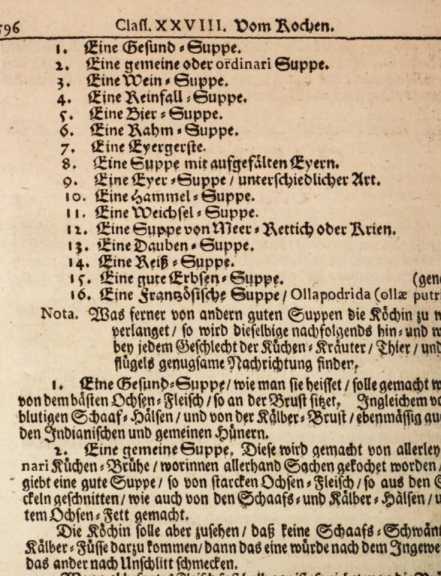 596 Class. XXVIII. Vom Kochen.
1. Eine Gesund-Suppe.
2. Eine gemeine oder ordinari Suppe.
3. Eine Wein-Suppe.
4. Eine Reinfall-Suppe.
5. Eine Bier-Suppe.
6. Eine Rahm-Suppe.
7. Eine Eyergerste.
8. Eine Suppe mit aufgefälten Eyern.
9. Eine Eyer-Suppe / unterschiedlicher Art.
10. Eine Hammel-Suppe.
11. Eine Weichsel-Suppe.
12. Eine Suppe von Meer-Rettich oder Krien.
13. Eine Dauben-Suppe.
14. Eine Reiß-Suppe.
15. Eine gute Erbsen-Suppe. (gen
16. Eine Frantzösische Suppe / Ollapodrida (ollæ putr
Nota. Was ferner von andern guten Suppen die Köchin zu
verlanget / so wird dieselbige nachfolgends hin-und
bey jedem Geschlecht der Küchen-Kräuter / Thier / und
flügels genugsame Nachrichtung finden.
1. Eine Gesund-Suppe / wie man sie heisset / solle gemacht
von dem bästen Ochsen-Fleisch / so an der Brust sitzet. Ingleichem
blutigen Schaaf-Hälsen / und von der Kälber-Brust / ebenmässig
den Indianischen und gemeinen Hünern.
2. Eine gemeine Suppe. Diese wird gemacht von allerley
nari Küchen-Brühe / worinnen allerhand Sachen gekochet worden /
giebt eine gute Suppe / so von starcken Ochsen-Fleisch / so aus den
ckeln geschnitten / wie auch von den Schaafs-und Kälber-Hälsen /
tem Ochsen-Fett gemacht.
Die Köchin solle aber zusehen / daß keine Schaafs-Schwän
Kälber-Füsse darzu kommen / dann das eine würde nach dem Ingewe
das ander nach Unschlitt schmecken.